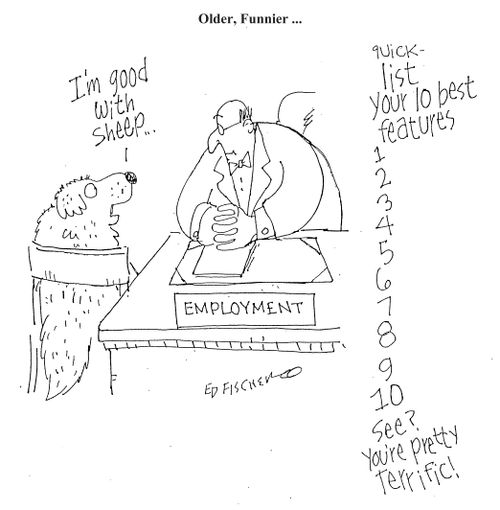 Older, Funnier ...
I'm good
with
sheep...
EMPLOYMENT
ED FISCHER
QUICK-
list
your 10 best
features
1
2
3
4
5
6
7
8
9
10
See?
You're pretty
Terrific!